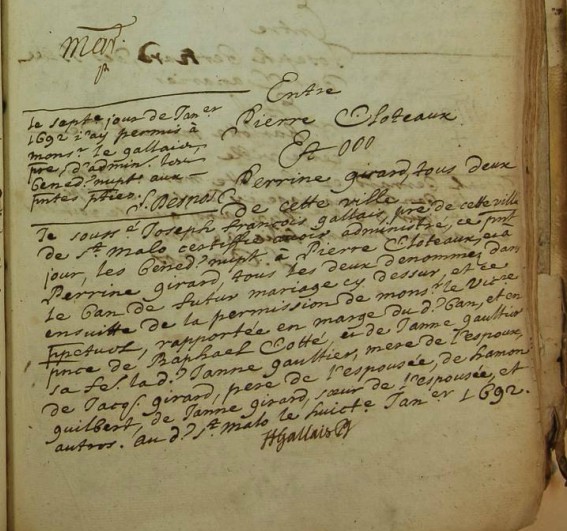 Mar.
Entre
Pierre Cloteaux
Et
Perrine girard, tous deux
de cette ville
le septe jour de Janer
1692 i'ay permis à
monsr le gallais,
pre, d'admin. les
bened. nupt. aux
pntes pties.
S. Desnos
Je soussé Joseph françois gallais, pre, de cette ville
de St malo certiffie avoir administré, ce pnt
jour, les bened. nupt. à Pierre Cloteaux, et à
Perrine girard, tous les deux denommez dans
le ban de futur mariage cy dessur, et ce
ensuitte de la permission de monsr le vice
rapportée en marge du d. ban, et en
pnce de Raphael Cotte, et de Janne gaultier
sa fe, la d. Janne gaultier, mere de l'espoux,
de Jacq. girard, pere de l'espousée, de hamon
guilbert, de Janne girard, sœur de l'espousée, et
autres. au d. St malo le huicte Janer 1692.
Gallais